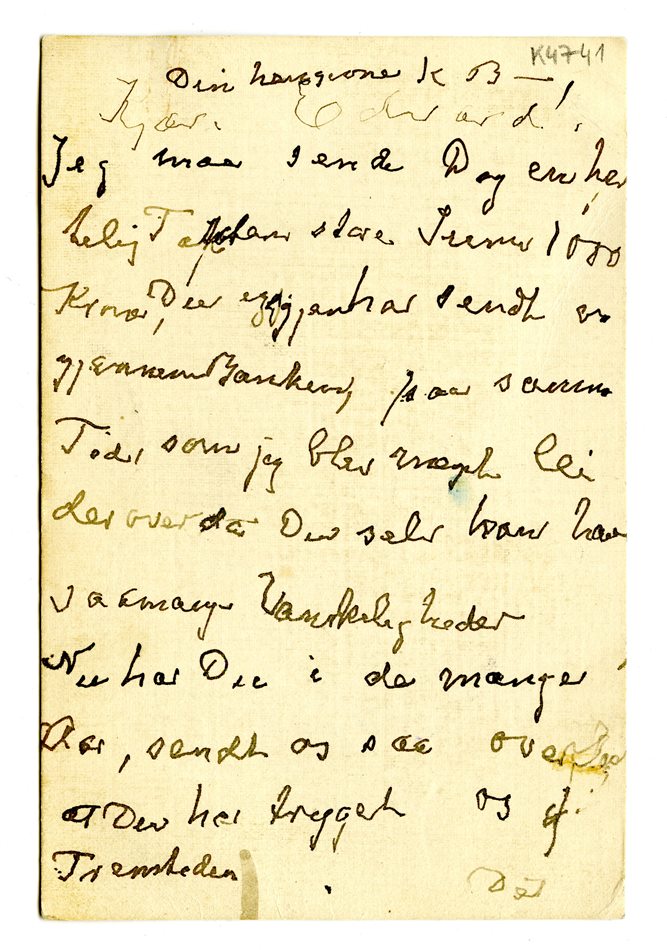 K4741
Din hengivne K B —
Kjære Edvard!
Jeg maa sende Dig en hjer
telig Tak den store Summen 1000
Kroner, Du igjen har sendt
gjennem Banken, paa samme
Tid, som jeg blev meget lei
der over da Du selv kan have
saa mange Vanskeligheder
Nu har Du i de mange
Aar, sendt os saa
at Du har trygget os
Fremtiden
Det